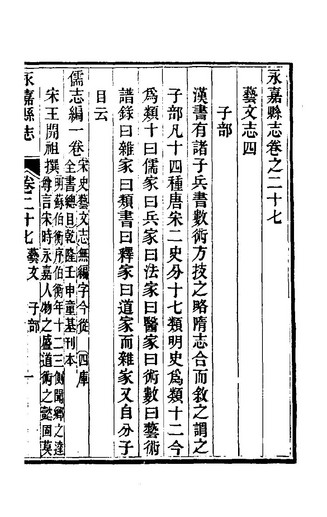 永嘉縣志卷之二十七
藝文志四
子部
漢書有諸子兵書數術方技之略隋志合而敘之謂之
子部凡十四種唐宋二史分十七類明史爲類十二今
爲類十曰儒家曰兵家曰法家曰醫家曰術數曰藝術
譜錄曰雜家曰類書曰釋家曰道家而雜家又自分子
目云
儒志編一卷
宋史藝文志無編字今從四庫
全書總目乾隆壬申童基刊本
宋王開祖撰
明蘇伯衡序伯衡年十二三飫聞鄉之達
尊言宋時永嘉人物之盛道術之懿固莫
永嘉縣志
卷二十七
藝文
子部
一